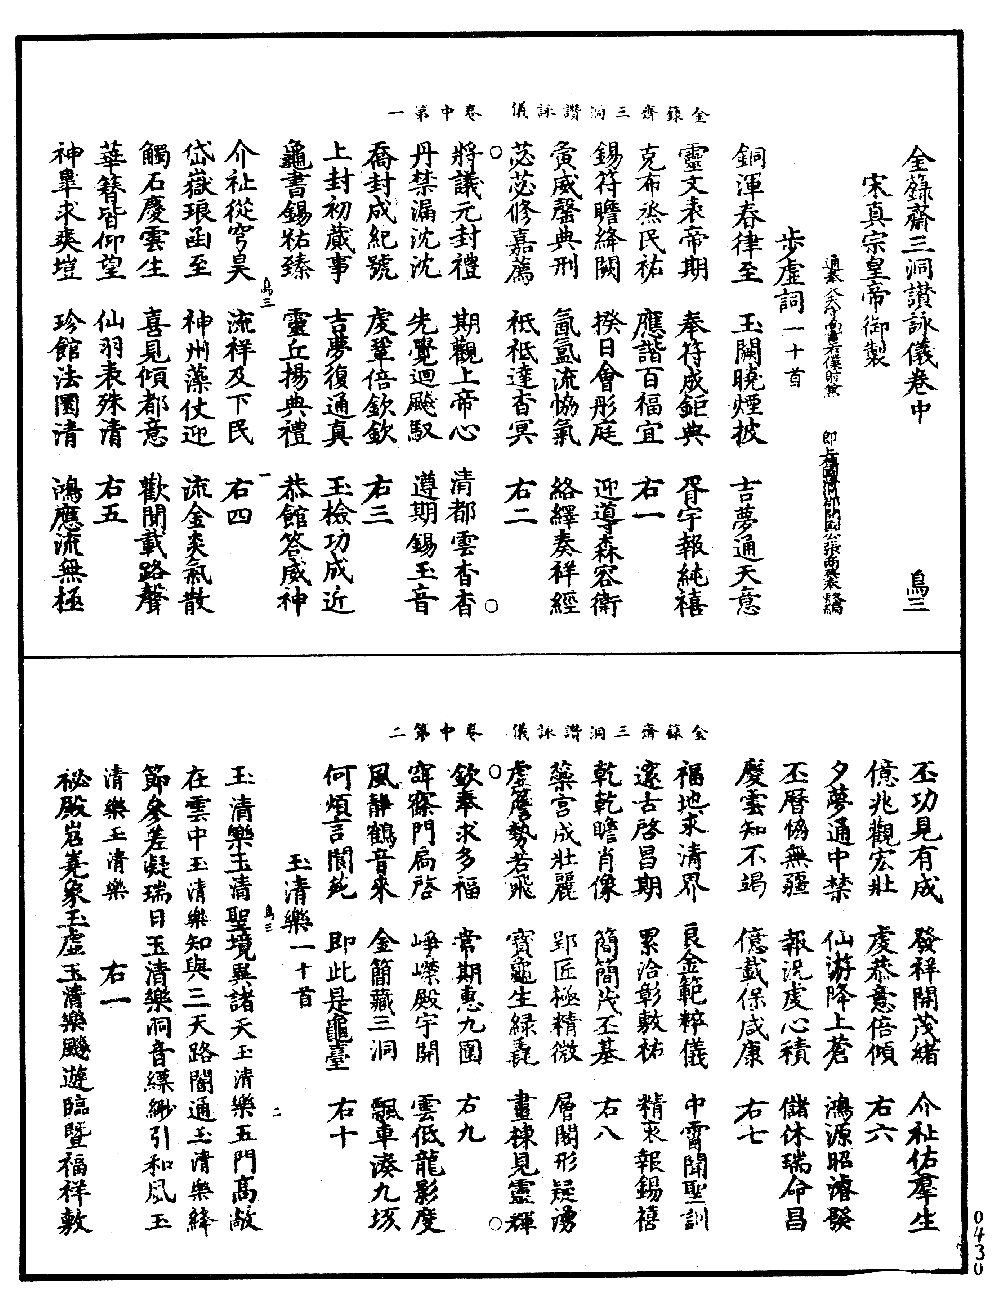 金錄齋三洞讚詠儀　卷中第一
金籙齋三洞讚詠儀卷中　鳥三
宋真宗皇帝御製
步虛詞一十首
銅渾春律至　玉闕曉煙披　吉夢通天意
靈文表帝期　奉符成鉅典　胥宇報純禧
克布烝民祐　應諧百福宜　右一
錫符瞻絳闕　揆日會彤庭　迎導森容衛
寅威罄典刑　氤氳流協氣　絡繹奏祥經
苾苾修嘉薦　祗祗達杳冥　右二
將議元封禮　期觀上帝心　清都雲杳杳
丹禁漏沈沈　先覺迴飈馭　遵期錫玉音
喬封成紀號　虔鞏倍欽欽　右三
上封初蕆事　吉夢復通真　玉檢功成近
龜書錫祐臻　靈丘揚典禮　恭館答威神
介祉從穹昊　流祥及下民　右四
鳥三　一
岱嶽琅函至　神州藻仗迎　流金炎氣散
觸石慶雲生　喜見傾都意　歡聞載路聲
華簪皆仰望　仙羽表殊清　右五
神臯求爽塏　珍館法圜清　鴻應流無極
金錄齋三洞讚詠儀　卷中第二
丕功見有成　發祥開茂緒　介祉佑羣生
億兆觀宏壯　虔恭意倍傾　右六
夕夢通中禁　仙游降上蒼　鴻源昭濬發
丕曆恊無疆　報況虔心積　儲休瑞命昌
慶雲知不竭　億載保咸康　右七
福地求清界　良金範粹儀　中霄聞聖訓
邃古啓昌期　累洽彰敷祐　精衷報錫禧
乾乾瞻肖像　簡簡茂丕基　右八
蘂宮成壯麗　郢匠極精微　層閣形疑湧
虛簷勢若飛　寶龜生綠毳　畫棟見靈輝
欽奉求多福　常期惠九圍　右九
窅窱門扃啓　崢嶸殿宇開　雲低龍影度
風靜鶴音來　金簡藏三洞　飄車湊九垓
何煩言閬苑　即此是龜臺　右十
玉清樂一十首
鳥三　二
玉清樂玉清聖境異諸天玉清樂五門高敞
在雲中玉清樂知與三天路闇通玉清樂絳
節參差凝瑞日玉清樂洞音縹緲引和風玉
清樂玉清樂　右一
祕殿岧嶤象玉虛玉清樂飈遊臨暨福祥敷
0430